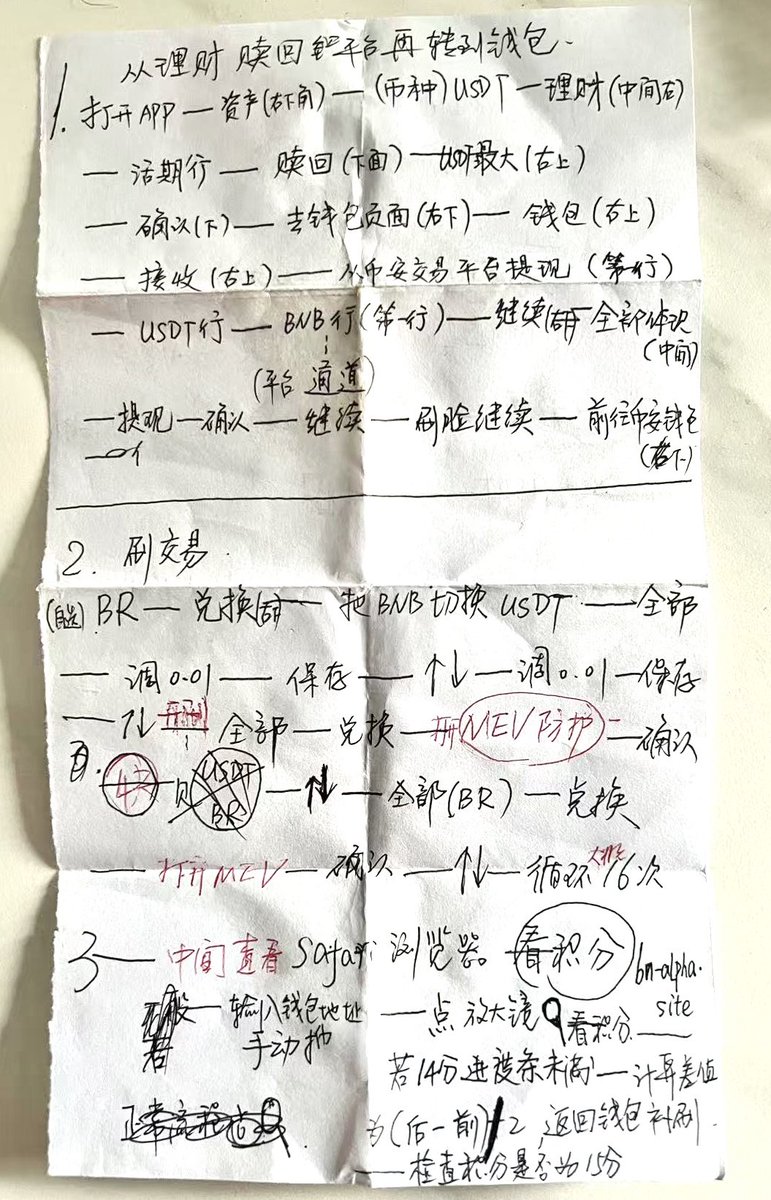 从理财 赎回 平台再转到钱包.
1. 打开APP — 资产(右下角) — (币种)USDT — 理财(中间右)
— 活期行 — 赎回(下面) — USDT最大(右上)
— 确认(下) — 去钱包页面(右下) — 钱包(右上)
— 接收(右上) — 从币安交易平台提现 (第一行)
— USDT行 — BNB行(第一行) — 继续 — 全部
(中间)
(平台 通道)
— 提现 — 确认 — 继续 — 刷脸继续 — 前往币安钱包
(若下)
2. 刷交易.
BR — 兑换 — 把BNB切换USDT — 全部
— 调0.01 — 保存 — ↑↓ — 调0.01 — 保存
— ↑↓ — 全部 — 兑换 — MEV防护 — 确认
— ↑↓ — 全部(BR) — 兑换
— 打开MEV — 确认 — ↑↓ — 循环 16次
3 — 中间查看 Safari 浏览器 看积分 bn-alpha.
site
— 输入钱包地址 — 点 放大镜 看积分
若 手动
若14分进度条未满 — 计算差值
为(后一前)/2, 返回钱包补刷.
— 检查积分是否为15分